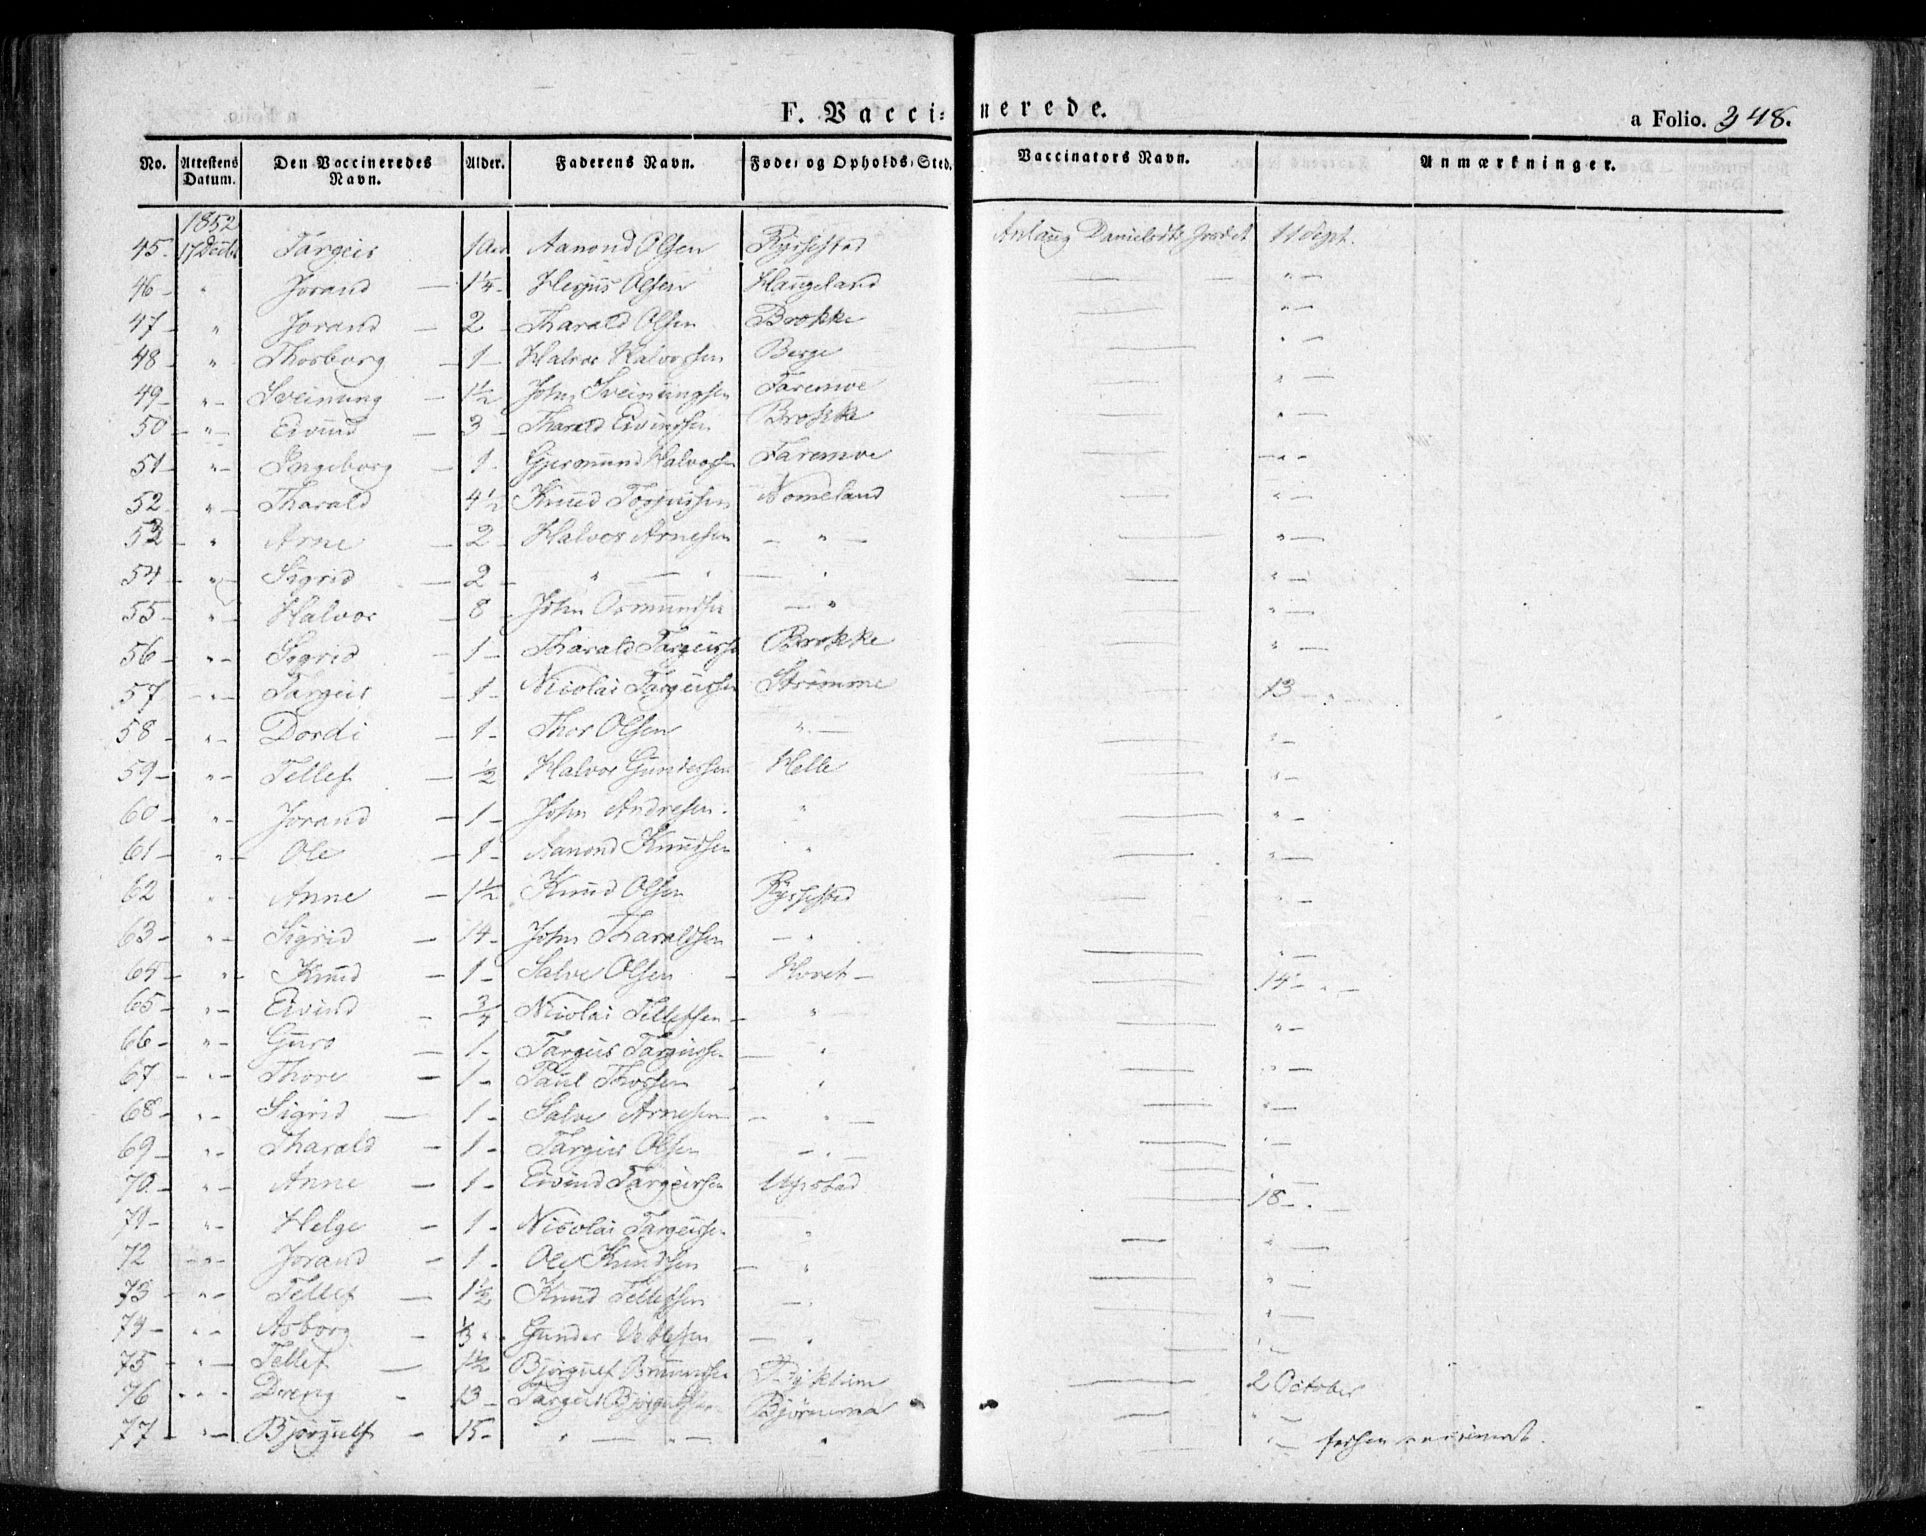 F. Vaccinerede.
a Folio. 348.
No. Attestens Datum. Den Vaccineredes Navn. Alder. Faderens Navn. Føde- og Opholds-Sted. Vaccinators Navn. Anmærkninger.
1852
45. 17 Decbr Targeir 1 Aar Aanond Olsen Ryshestad Anlaug Danielsdtr 11 Sept.
46 - " Jorand - 1¼ - Olsen Haugeland — " —
47 - " Jorand - 2 - Tharald Olsen Brokke — " —
48 - " Thorborg - 1 - Halvor Halvorsen Berge — " —
49 - " - Sveinung - 1½ John Sveinungsen Faremoe — " —
50 - " - Eivind - 3 - Tharald Eivindsen Brokke — " —
51 - " - Ingeborg - 1 - Gjermund Halvorsen Faremoe — " —
52 - " - Tharald 4½ Knud Torjussen Nomeland — " —
53 - " Arne - 2 - Halvor Arnesen - " - — " —
54 - " - Sigrid - 2 - " — " — " — " —
55 - " - Halvor - 8 John Osmundsen — " — " —
56 - " - Sigrid - 1 - Tharald Targeirsen Brokke — " —
57 - " - Targeir - 1 - Nicolai Targeirsen Strømme — 13 — "
58 - " - Dordi - 1 - Thor Olsen " — — " —
59 - " - Tellef - ½ Halvor Gundersen Helle — " —
60 - " - Jorand - 1 - John Andresen " — " —
61 - " - Ole - 1 - Aanond Knudsen " — " —
62 " - Anne - 1½ Knud Olsen Ryshestad — " —
63 - " - Sigrid - 14 - John Tharaldsen - " — " —
64 - " - Knud - 1 - Salve Olsen - Hovet - — 14 - " -
65 - " - Eivind - ¾ Nicolai Tellefsen - " — " —
66 - " - Guro - 1 - Targeir Targeirsen — " — " —
67 - " - Thore - 1 - Paul Thorsen " — " —
68 - " - Sigrid — 1 - Salve Arnesen - " — " —
69 - " - Tharald - 1 - Targeir Olsen - " - — " —
70 - " - Anne - 1 - Eivind Targeirsen Upstad — " —
71 - " - Helge - 1 - Nicolai Targeirsen " — 18 - " -
72 - " - Jorand - 1 - Ole Knudsen - " — " —
73 - " - Tellef — 1½ Knud Tellefsen - " — " —
74 - " - Asborg - ⅓ " - Gunder - " — " —
75 - " - Tellef — 1½ Bjørgulf — " —
76 " Dreng - 13 - Targeir Bjørgulfsen — 2 October
77 - " - Bjørgulf - 15 - " — " — " — " —